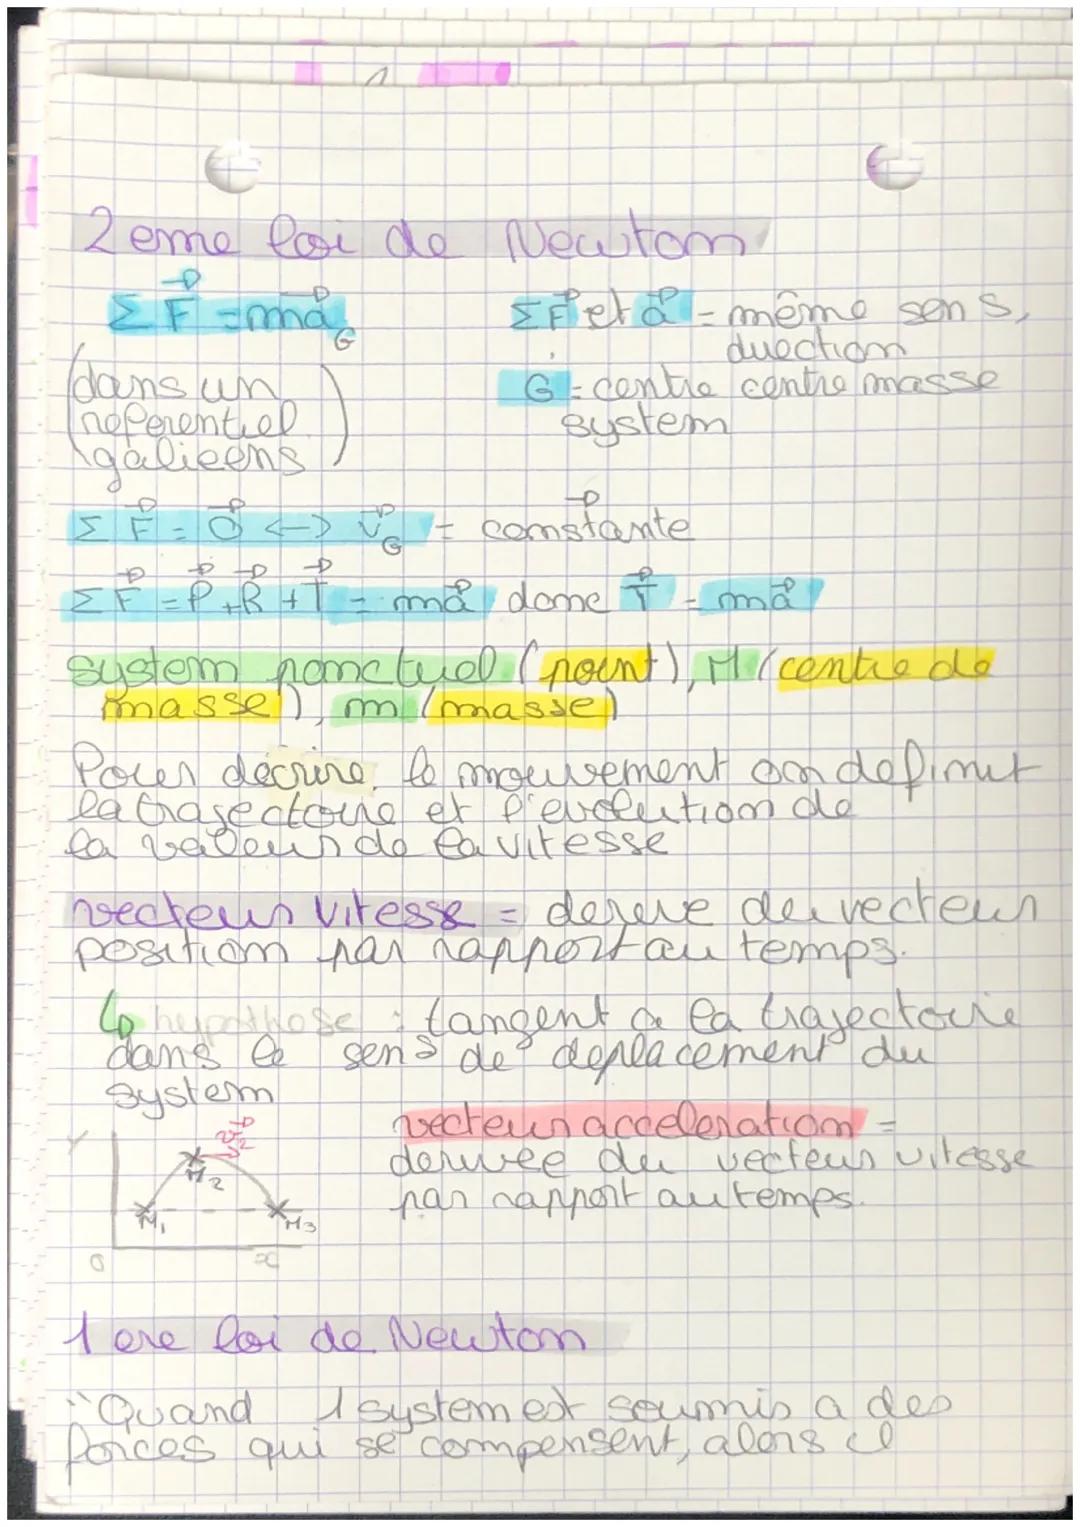 2 eme loi de Newton
Σ F⃗ = ma⃗G
Σ F⃗ et a⃗ = même sens,
duection
(dans un
referentiel
galieens)
G = centre centre masse
system
Σ F⃗ = 0⃗ <-> v⃗G = constante
Σ F⃗ = P⃗ + R⃗ + T⃗ = ma⃗ donc T⃗ = ma⃗
system ponctuel (point), M (centre de
masse), m (masse)
Pour décrire le mouvement on definit
la trajectoire et l'evolution de
la valeur de la vitesse
vecteur vitesse = derive du vecteur
position par rapport au temps.
↳ hypothose : tangent a la trajectoire
dans le sens de deplacement du
system
y
v⃗2
M2
M1
M3
0
x
vecteur acceleration =
derivee du vecteur vitesse
par rapport au temps.
1 ere loi de Newton
"Quand 1 system est soumis a des
forces qui se compensent, alors il